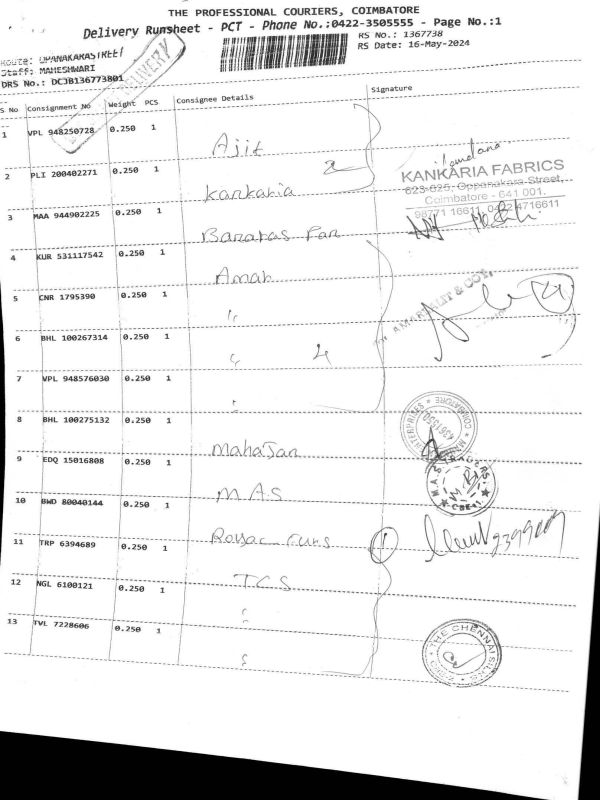 THE PROFESSIONAL COURIERS, COIMBATORE
Delivery Runsheet - PCT - Phone No.:0422-3505555 - Page No.:1
RS No.: 1367738
RS Date: 16-May-2024
Route: OPANAKARASTREET
Staff: MAHESHWARI
DRS No.: DCJB136773801
DELIVERY
S No Consignment No Weight PCS Consignee Details Signature
1 VPL 948250728 0.250 1 Ajit
2 PLI 200402271 0.250 1 Kankaria 2
KANKARIA FABRICS
623-625, Oppanakara Street,
Coimbatore - 641 001.
98771 16611, 0422 4716611
3 MAA 944902225 0.250 1 Banaras Pan
4 KUR 531117542 0.250 1 Amar
5 CNR 1795390 0.250 1 "
6 BHL 100267314 0.250 1 " 4
7 VPL 948576030 0.250 1 "
8 BHL 100275132 0.250 1 Mahajan
COIMBATORE
9 EDQ 15016808 0.250 1 M.A.S
M A S TRADERS
CBE-1
10 BWD 80040144 0.250 1
11 TRP 6394689 0.250 1 TCS
12 NGL 6100121 0.250 1 "
13 TVL 7228606 0.250 1 "
THE CHENNAI SILKS